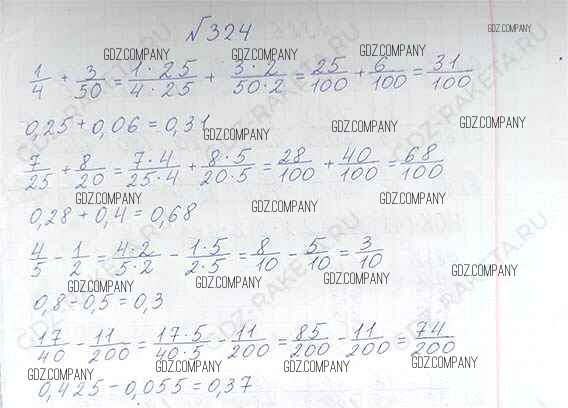 №324
GDZ.COMPANY
GDZ.COMPANY GDZ.COMPANY GDZ.COMPANY
1/4 + 3/50 = 1·25/4·25 + 3·2/50·2 = 25/100 + 6/100 = 31/100
0,25 + 0,06 = 0,31
GDZ.COMPANY GDZ.COMPANY
7/25 + 8/20 = 7·4/25·4 + 8·5/20·5 = 28/100 + 40/100 = 68/100
GDZ.COMPANY GDZ.COMPANY GDZ.COMPANY
0,28 + 0,4 = 0,68
4/5 - 1/2 = 4·2/5·2 - 1·5/2·5 = 8/10 - 5/10 = 3/10
GDZ.COMPANY GDZ.COMPANY GDZ.COMPANY GDZ.COMPANY
0,8 - 0,5 = 0,3
17/40 - 11/200 = 17·5/40·5 - 11/200 = 85/200 - 11/200 = 74/200
GDZ.COMPANY GDZ.COMPANY GDZ.COMPANY GDZ.COMPANY
0,425 - 0,055 = 0,37
GDZ-RAKETA.RU